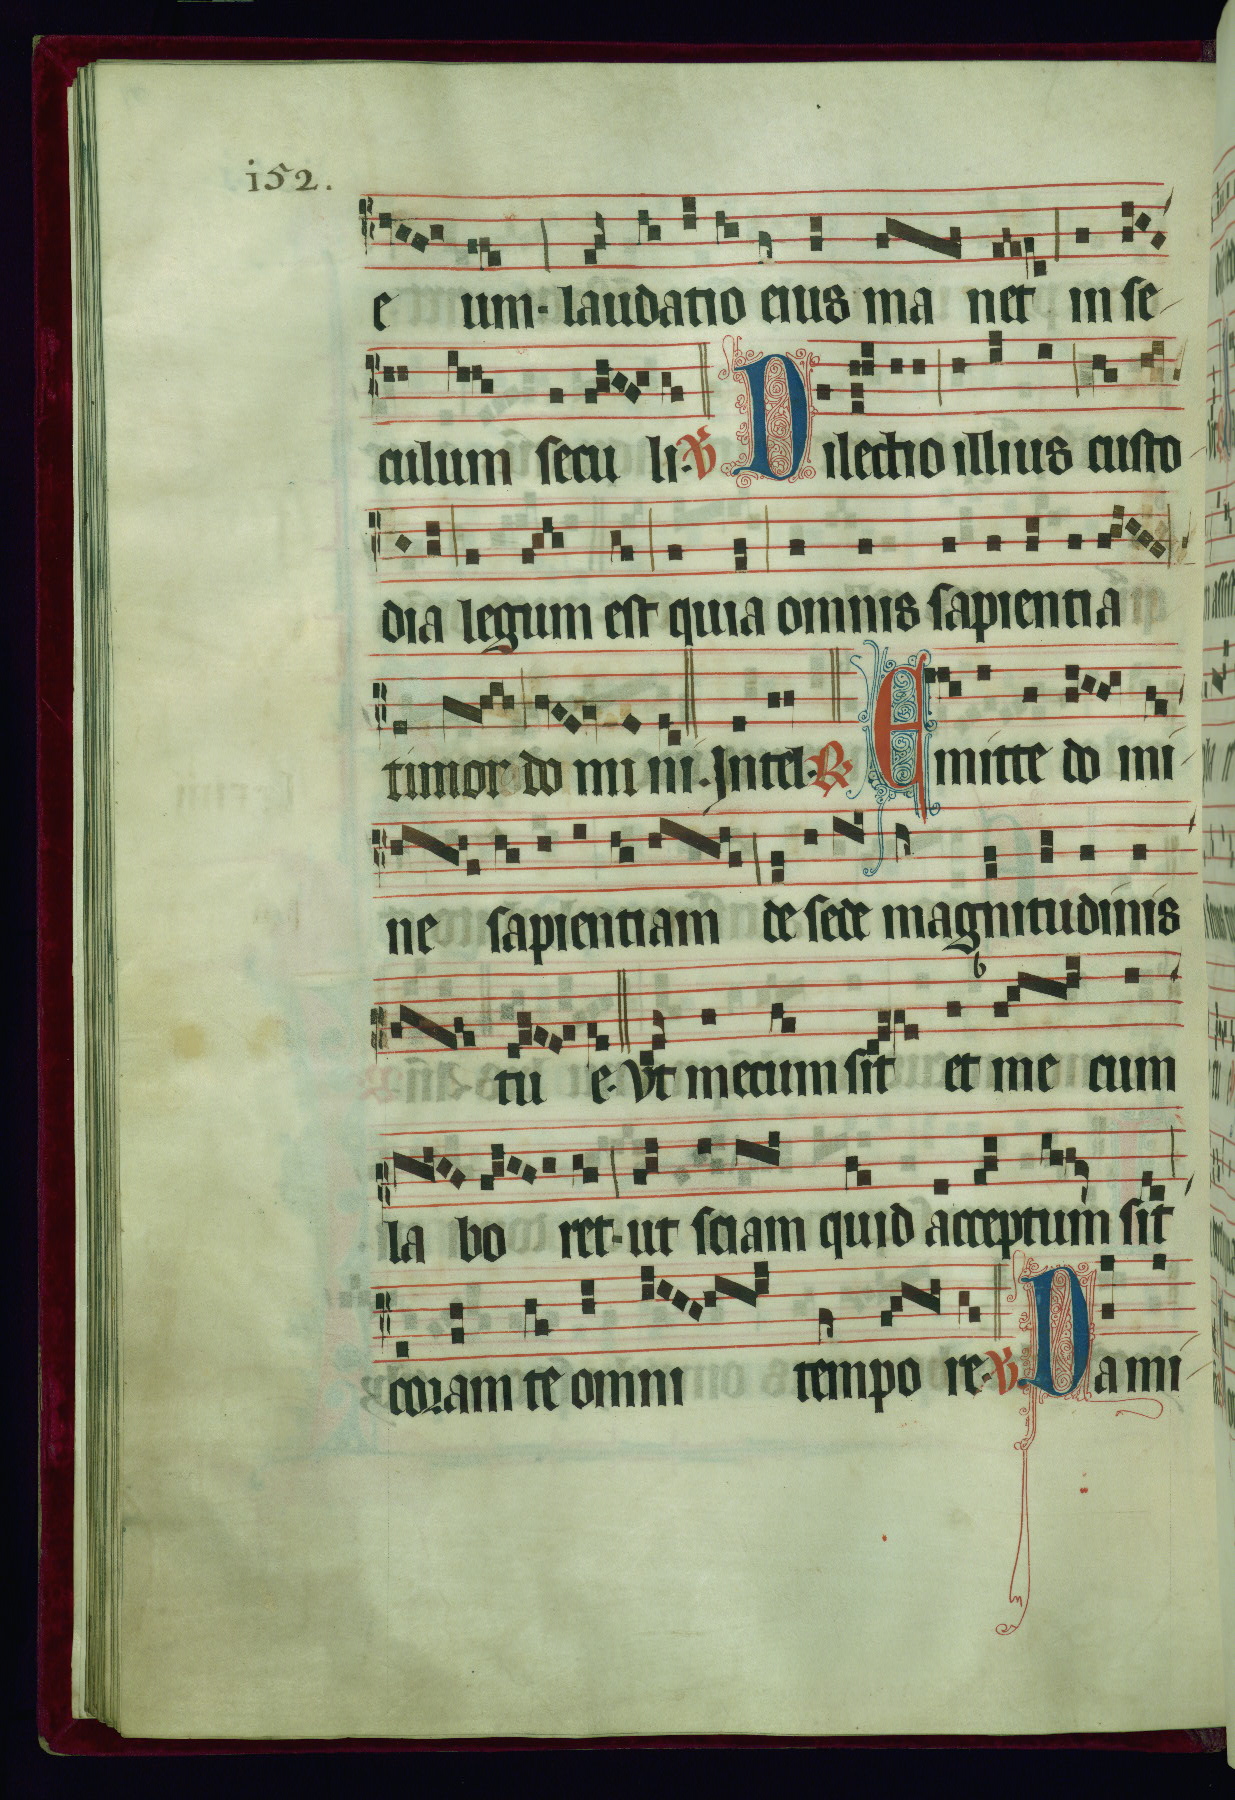 i52.
e um· laudatio eius ma net in se
culum secu li· ℣ Dilectio illius custo
dia legum est quia omnis sapientia
timor do mi ni. Intel· ℟ Emitte do mi
ne sapientiam de sede magnitudinis
tu e· Vt mecum sit et me cum
la bo ret· ut sciam quid acceptum sit
coram te omni tempo re· ℣ Da mi